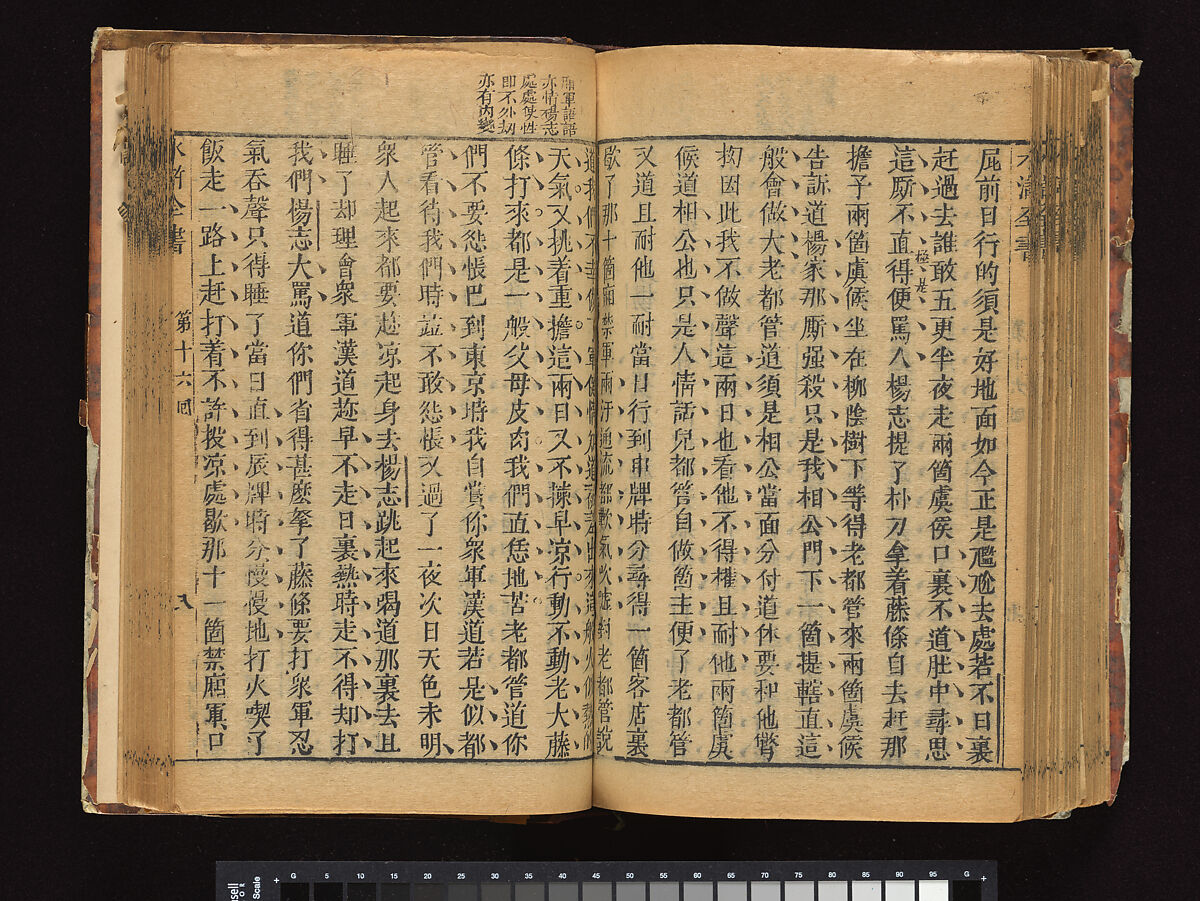 屁前日行的須是好地面如今正是尷尬去處若不日裏
赶過去誰敢五更半夜走兩箇虞侯口裏不道肚中尋思
極是
這厮不直得便罵人楊志提了朴刀拿着藤條自去赶那
擔子兩箇虞候坐在柳陰樹下等得老都管來兩箇虞候
告訴道楊家那厮强殺只是我相公門下一箇提轄直這
般會做大老都管道須是相公當面分付道休要和他彆
拗因此我不做聲這兩日也看他不得權且耐他兩箇虞
候道相公也只是人情話兒都管自做箇主便了老都管
又道且耐他一耐當日行到申牌時分尋得一箇客店裏
歇了那十箇廂禁軍兩汗通流都歎氣吹噓對老都管說
廂軍訴語
亦情楊志
處處使性
即不外刧
亦有內變
道我們不幸做了軍健情知道被差出來這般火似熱的
天氣又挑着重擔這兩日又不揀早凉行動不動老大藤
條打來都是一般父母皮肉我們直恁地苦老都管道你
們不要怨悵巴到東京時我自賞你衆軍漢道若是似都
管看待我們時並不敢怨悵又過了一夜次日天色未明
衆人起來都要趂凉起身去楊志跳起來喝道那裏去且
睡了却理會衆軍漢道趂早不走日裏熱時走不得却打
我們楊志大罵道你們省得甚麽拏了藤條要打衆軍忍
氣吞聲只得睡了當日直到辰牌時分慢慢地打火喫了
飯走一路上赶打着不許投凉處歇那十一箇禁廂軍口
水滸全書 第十六回 八
Scale
G 5 10 20 30 40 45 50 55 60 65 70 75 80 85 90 95 G